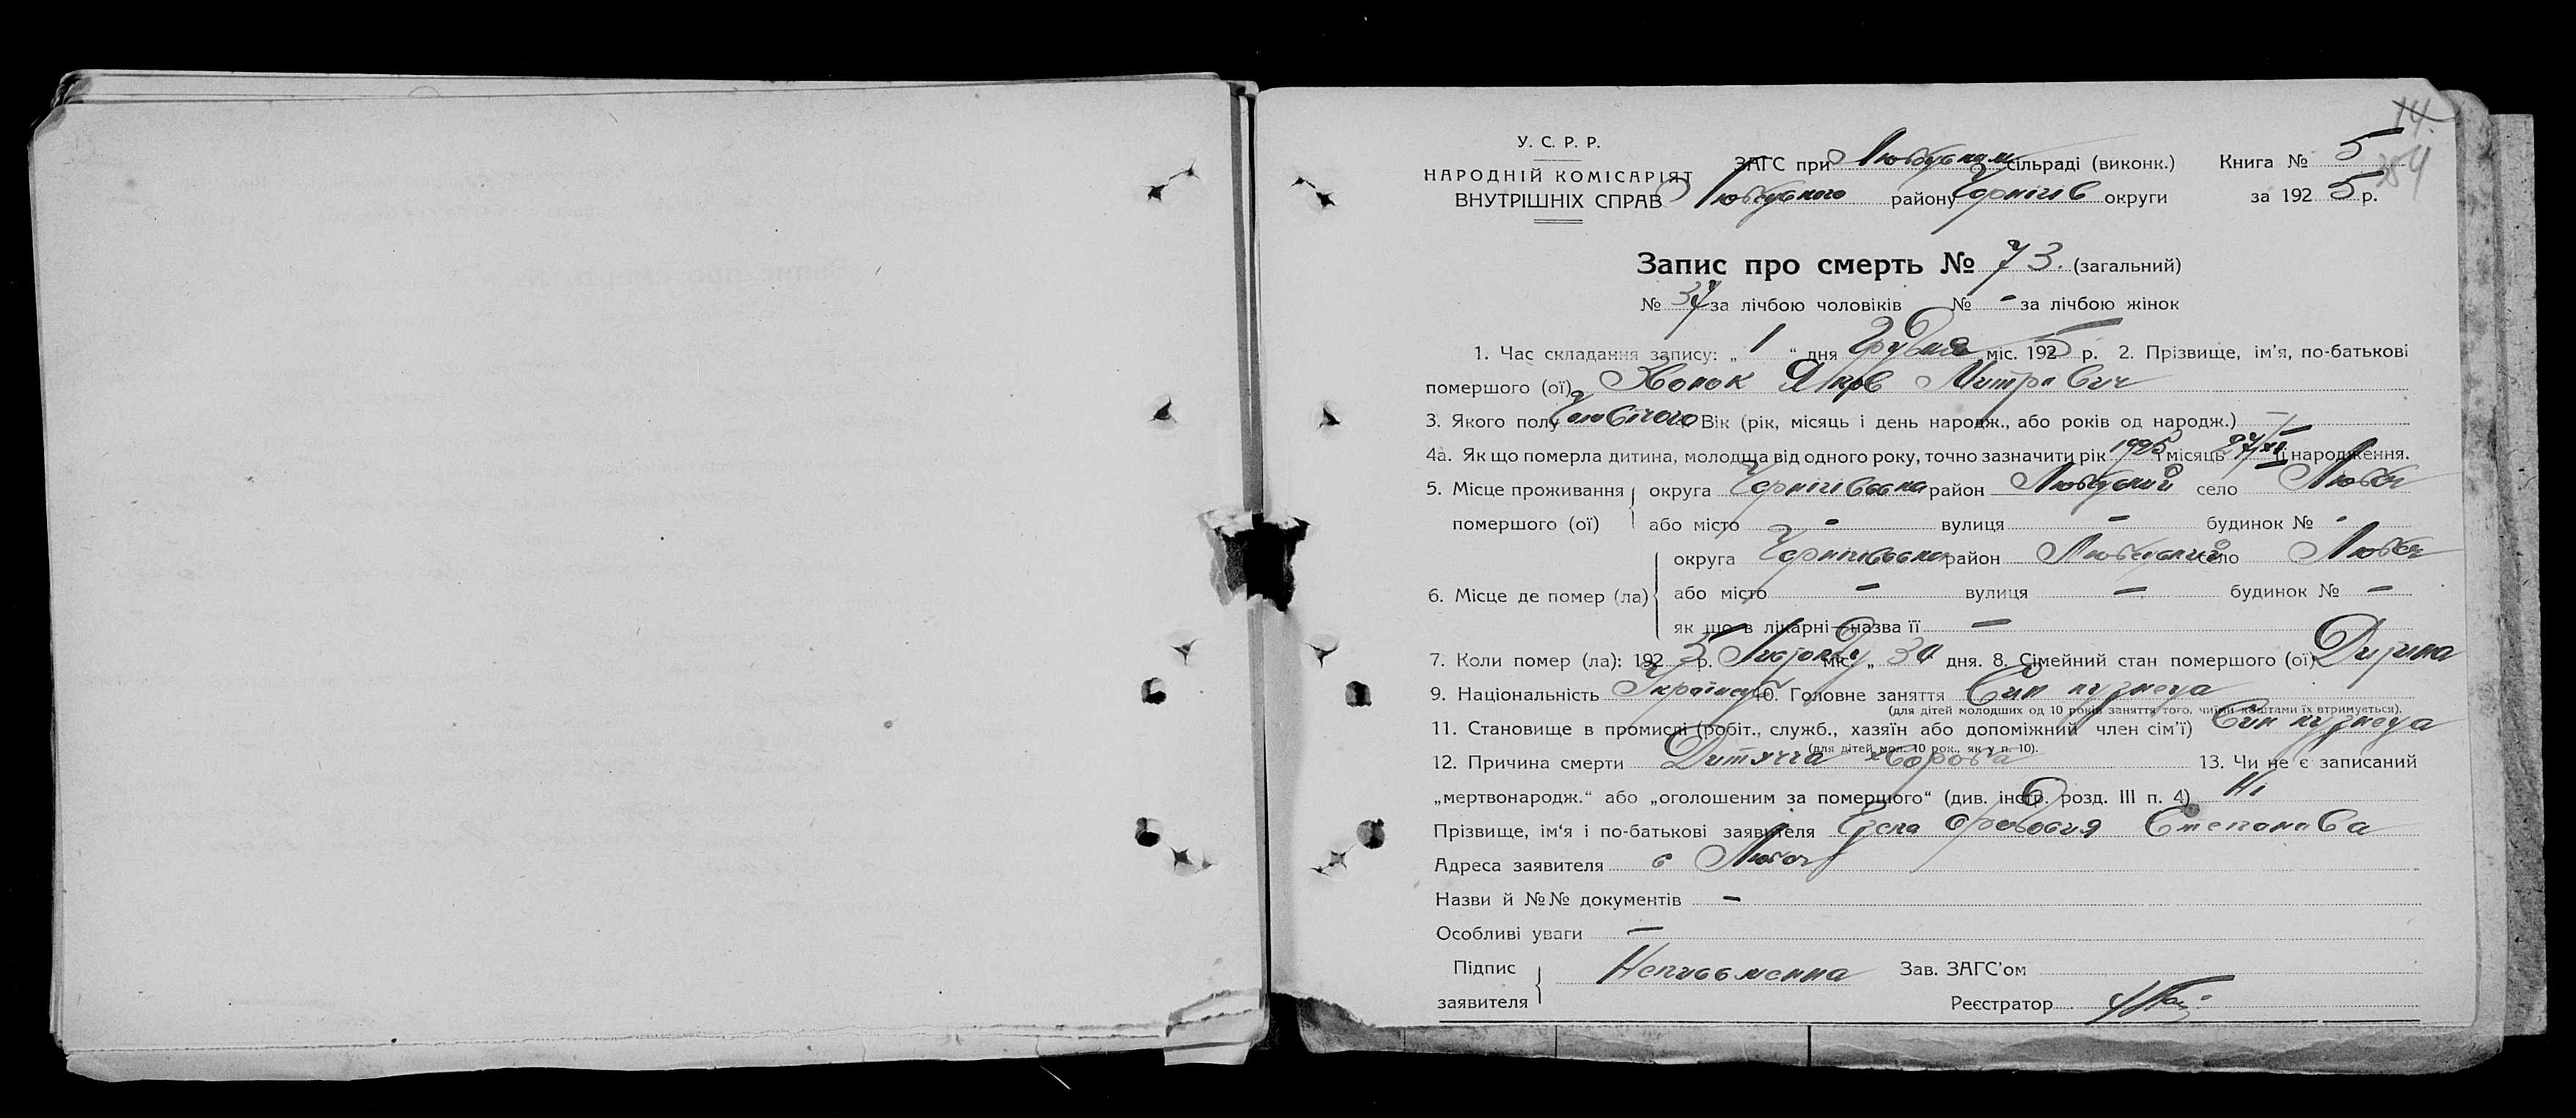 14.
254
У. С. Р. Р.
НАРОДНІЙ КОМІСАРІЯТ
ВНУТРІШНІХ СПРАВ
ЗАГС при Любецькам сільраді (виконк.) Книга № 5
Любецького району Чорнігів округи за 192 5 р.
Запис про смерть № 73. (загальний)
№ 37 за лічбою чоловіків № - за лічбою жінок
1. Час складання запису: „ 1 “ дня Грудня міс. 1925 р. 2. Прізвище, ім'я, по-батькові
помершого (ої) Яков Митрович
3. Якого полу Чоловічого Вік (рік, місяць і день народж., або років од народж.) —
4а. Як що померла дитина, молодша від одного року, точно зазначити рік 1925 і місяць 27/XI її народження.
5. Місце проживання округа Чорнігівська район Любецький село Любеч
помершого (ої) або місто - вулиця - будинок № -
6. Місце де помер (ла) округа Чорнігівська район Любецький село Любеч
або місто - вулиця - будинок № -
як що в лікарні—назва її —
7. Коли помер (ла): 192 5 р. міс. „ 30 дня. 8. Сімейний стан помершого (ої) Дитина
9. Національність 10. Головне заняття Син кузнеця
(для дітей молодших од 10 років заняття того, чиїми коштами їх втримується).
11. Становище в промислі (робіт., служб., хазяїн або допоміжний член сім'ї) Син кузнеця
(для дітей мол. 10 рок., як у п. 10).
12. Причина смерти Дитяча хвороба 13. Чи не є записаний
„мертвонародж.“ або „оголошеним за помершого“ (див. інстр. розд. III п. 4) Ні
Прізвище, ім'я і по-батькові заявителя Степанова
Адреса заявителя с Любеч
Назви й №№ документів -
Особливі уваги —
Підпис
заявителя Неписьменна Зав. ЗАГС'ом
Реєстратор